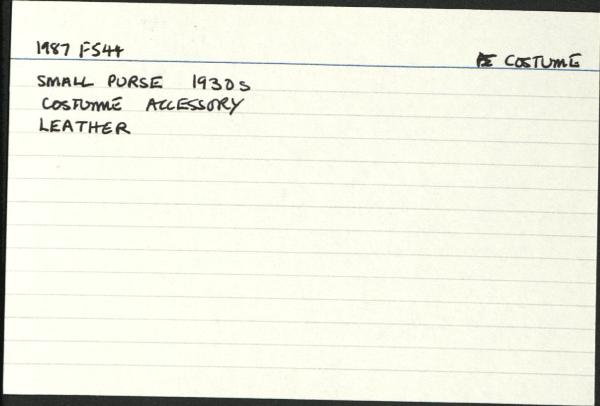 1987 F544
COSTUME
SMALL PURSE 1930s
COSTUME ACCESSORY
LEATHER